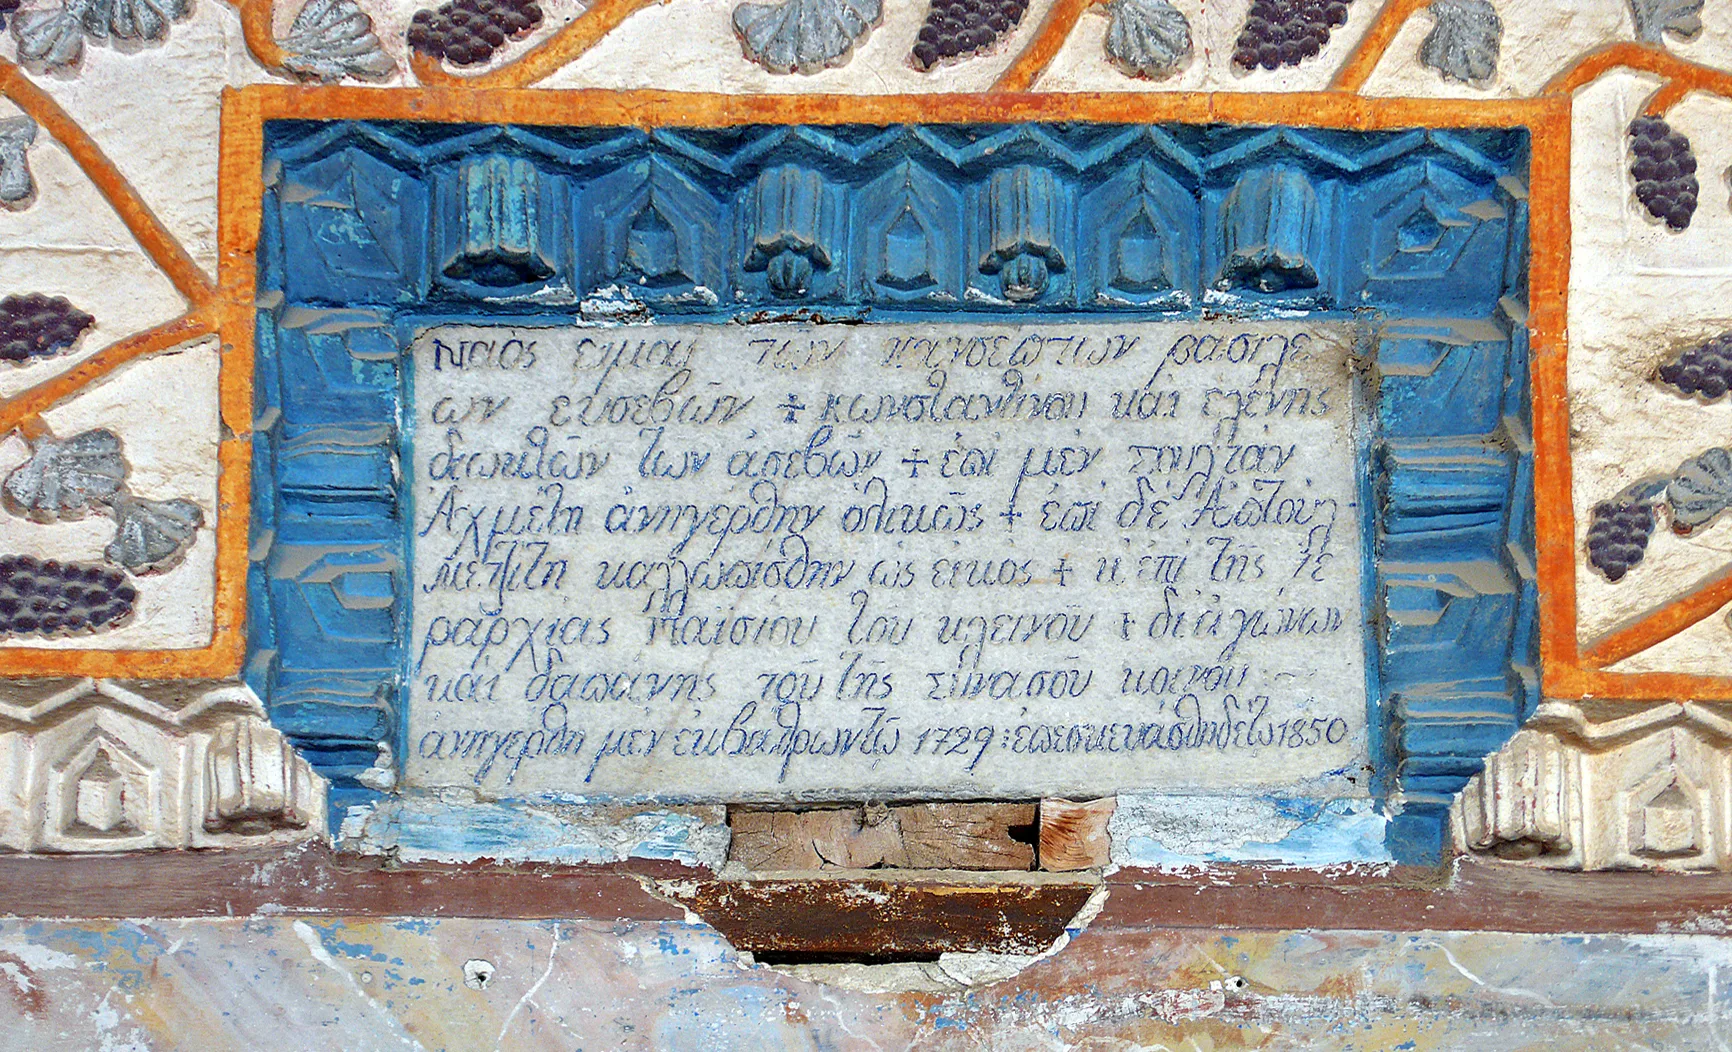 Ναὸς ειμαι των πανσεπτων βασιλε
ων ευσεβῶν ÷ κωνσταντίνου και ελένης
διωκτῶν τῶν ἀσεβῶν + ἐπὶ μὲν σουλτὰν
Ἀχμέτη ἀνηγέρθην ὁλικῶς + ἐπὶ δὲ Ἀπτοὺλ
μετζίτη καλλωπίσθην ὡς εικος + κ ἐπὶ τῆς ἱε
ραρχίας Παϊσιου τοῦ κλεινοῦ + δι ἀγώνων
καὶ δαπάνης τοῦ τῆς σινασοῦ κοινοῦ :
ἀνηγέρθη μὲν ἐκ βαθρων τῶ 1729 : ἐπεσκευάσθη δὲ τῶ 1850